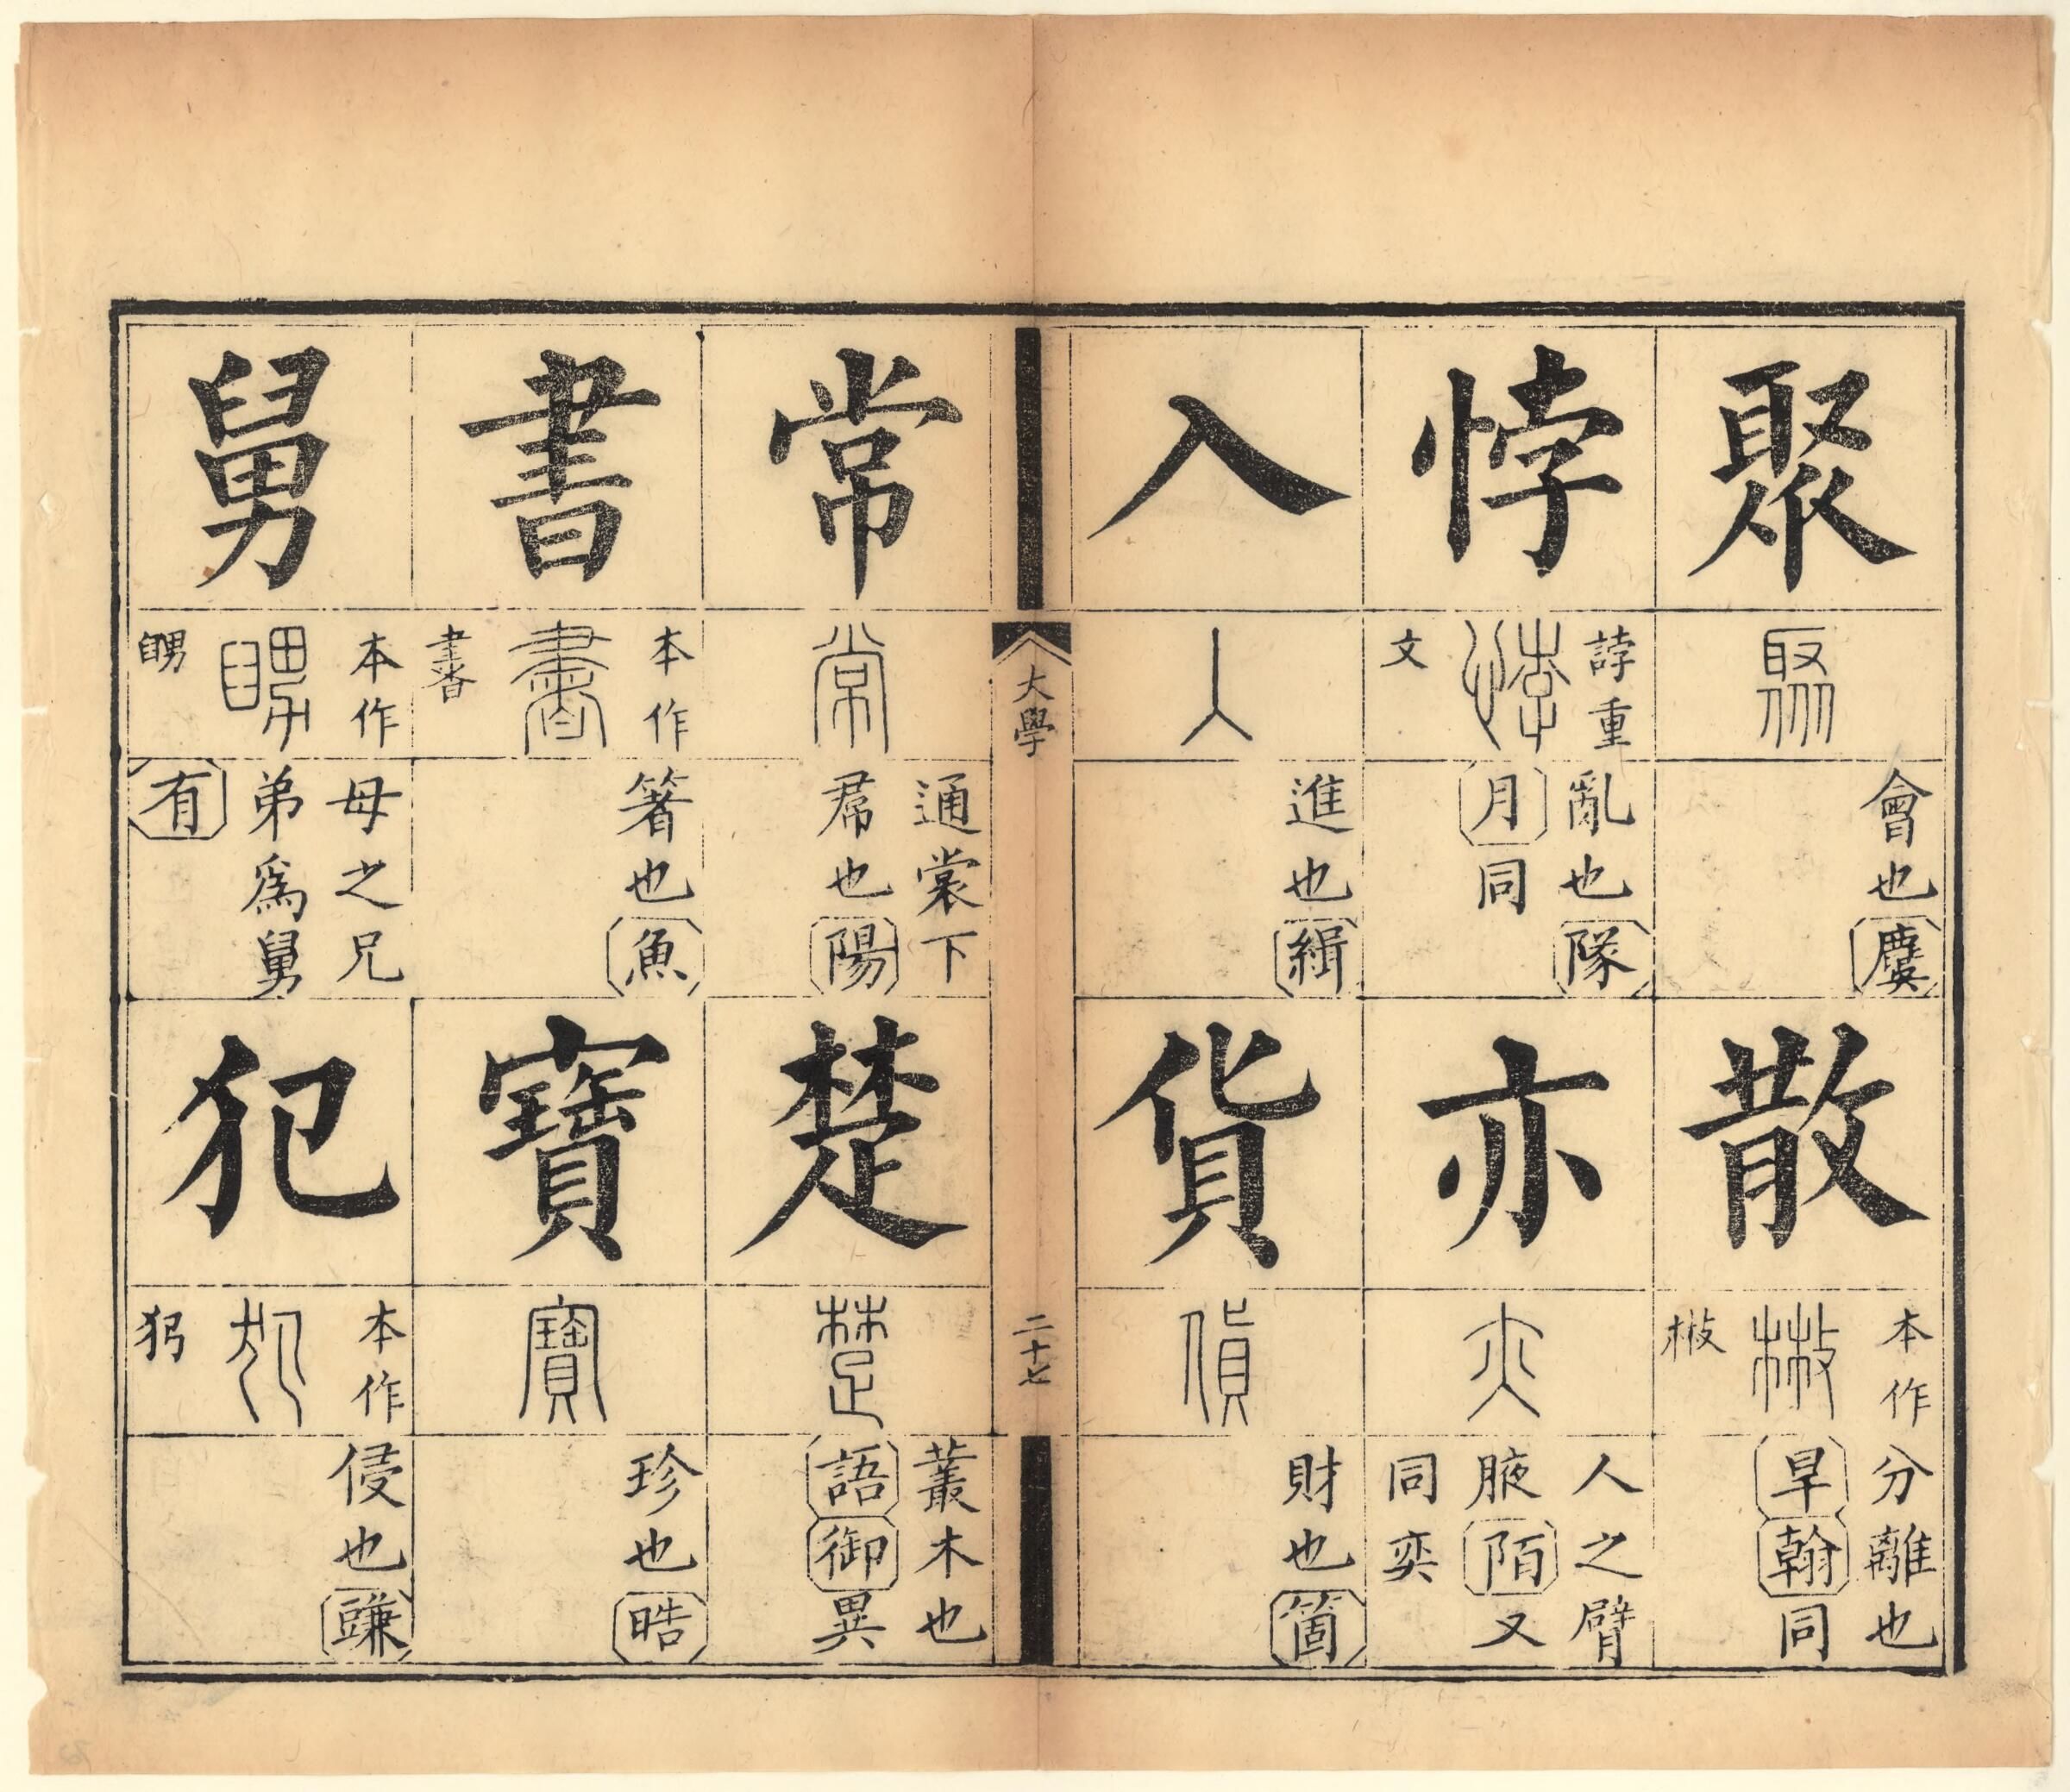 聚
聚
會也麌
散
本作
散
㪔
分離也
旱翰同
悖
誖重
悖
文
亂也隊
月同
亦
亦
人之臂
腋陌又
同奕
入
入
進也緝
貨
貨
財也箇
大學
二十七
常
常
通裳下
帬也陽
楚
楚
叢木也
語御異
書
本作
書
箸也魚
寶
寶
珍也晧
舅
本作
舅
母之兄
弟爲舅
有
犯
本作
犯
侵也豏